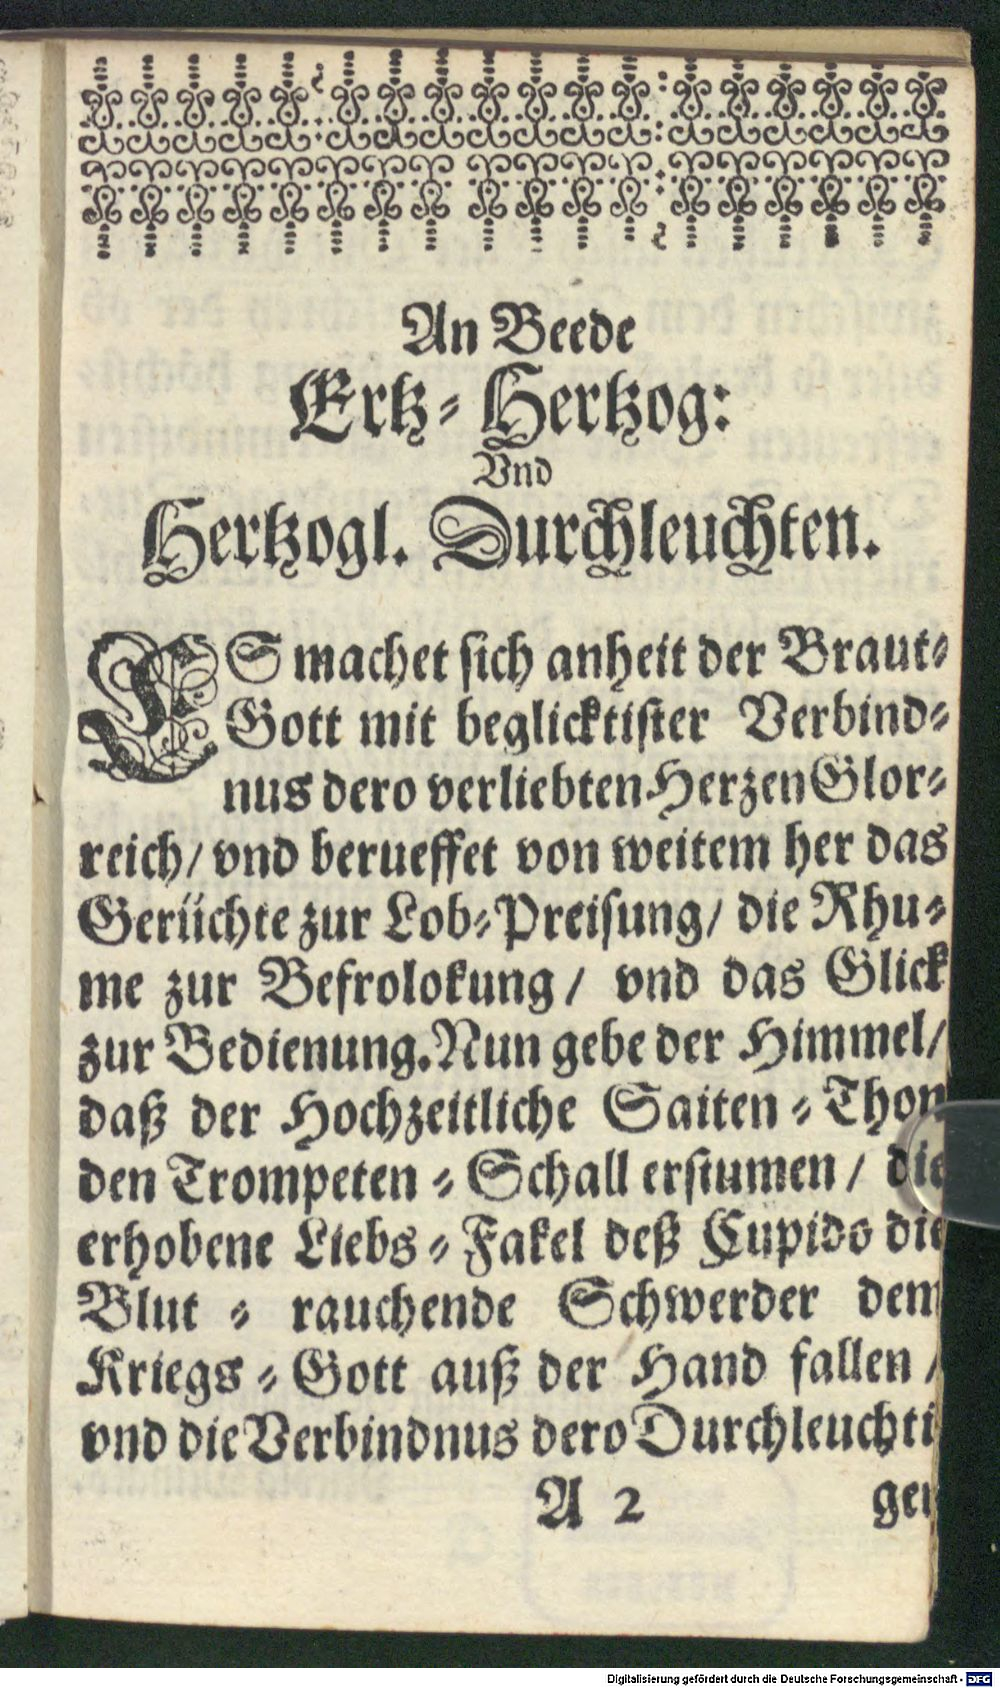 An Beede
Ertz-Hertzog:
Vnd
Hertzogl. Durchleuchten.
ES machet sich anheit der Braut-
Gott mit beglicktister Verbind-
nus dero verliebten Herzen Glor-
reich/ vnd berueffet von weitem her das
Gerüchte zur Lob-Preisung/ die Rhu-
me zur Befrolokung/ vnd das Glick
zur Bedienung. Nun gebe der Himmel/
daß der Hochzeitliche Saiten-Thon
den Trompeten-Schall erstumen/ die
erhobene Liebs-Fakel deß Cupido die
Blut-rauchende Schwerder dem
Kriegs-Gott auß der Hand fallen/
vnd die Verbindnus dero Durchleuchti
A 2 gen
Digitalisierung gefördert durch die Deutsche Forschungsgemeinschaft - DFG